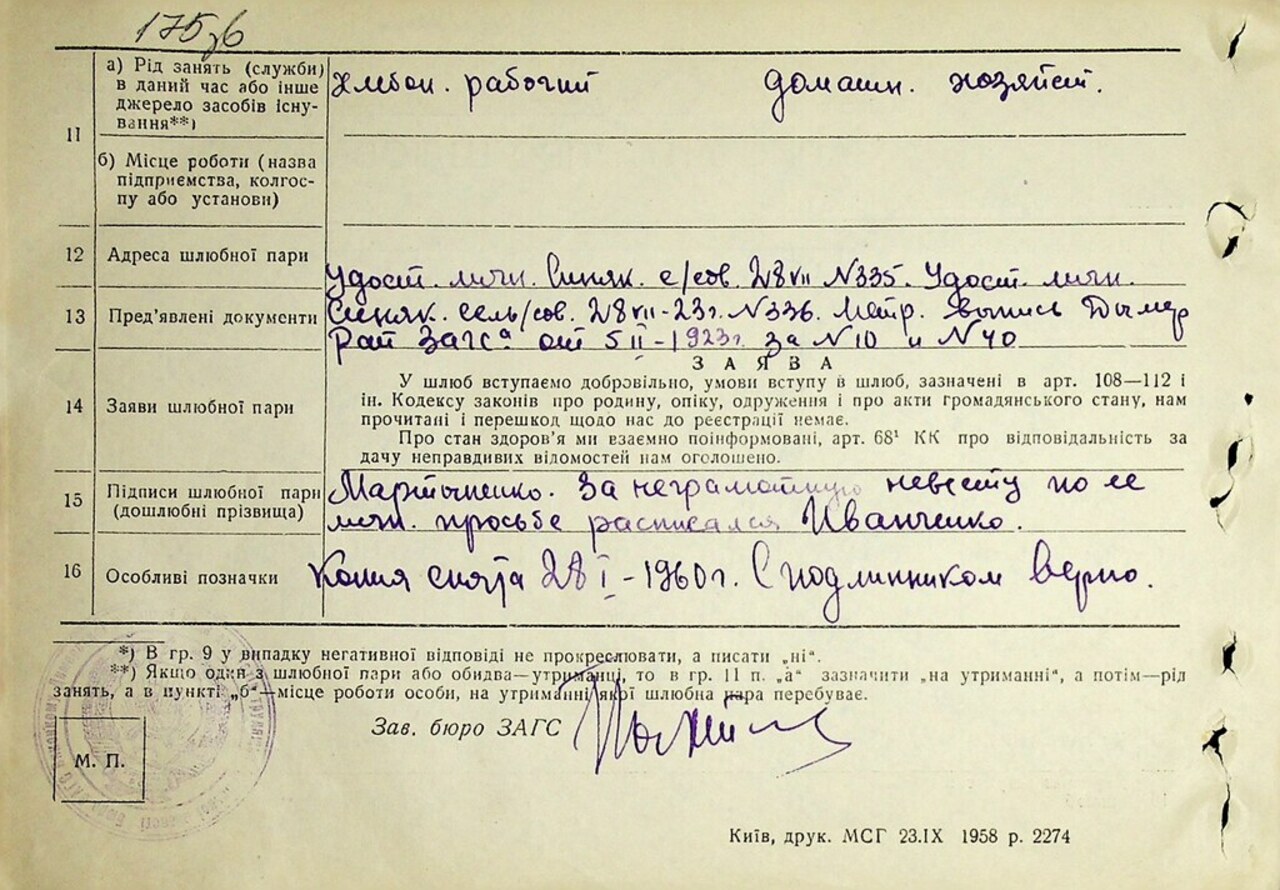 175 зв
11
а) Рід занять (служби) в даний час або інше джерело засобів існування**)
Хлебоп. рабочий
домашн. хозяйст.
б) Місце роботи (назва підприємства, колгоспу або установи)
12
Адреса шлюбної пари
13
Пред'явлені документи
Удост. личн. Синяк. с/сов. 28 VII N335. Удост. личн.
Синяк. сель/сов. 28 VII-23г. N336. Метр. выпись Дымер
Рай ЗАГСа от 5 II-1923г. за N10 и N40
14
Заяви шлюбної пари
ЗАЯВА
У шлюб вступаємо добровільно, умови вступу в шлюб, зазначені в арт. 108—112 і
ін. Кодексу законів про родину, опіку, одруження і про акти громадянського стану, нам
прочитані і перешкод щодо нас до реєстрації немає.
Про стан здоров'я ми взаємно поінформовані, арт. 68¹ КК про відповідальність за
дачу неправдивих відомостей нам оголошено.
15
Підписи шлюбної пари
(дошлюбні прізвища)
Мартыненко. За неграмотную невесту по ее
личн. просьбе расписался Иванченко.
16
Особливі позначки
Копия снята 28 I-1960г. С подлинником верно.
*) В гр. 9 у випадку негативної відповіді не прокреслювати, а писати „ні“.
**) Якщо один з шлюбної пари або обидва—утриманці, то в гр. 11 п. „а“ зазначити „на утриманні“, а потім—рід
занять, а в пункті „б“—місце роботи особи, на утриманні якої шлюбна пара перебуває.
Зав. бюро ЗАГС
М. П.
Київ, друк. МСГ 23.IX 1958 р. 2274